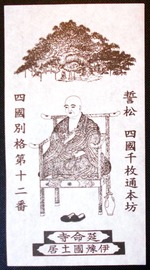 誓松 四國千枚通本坊
四國別格第十二番
延命寺
伊豫國土居